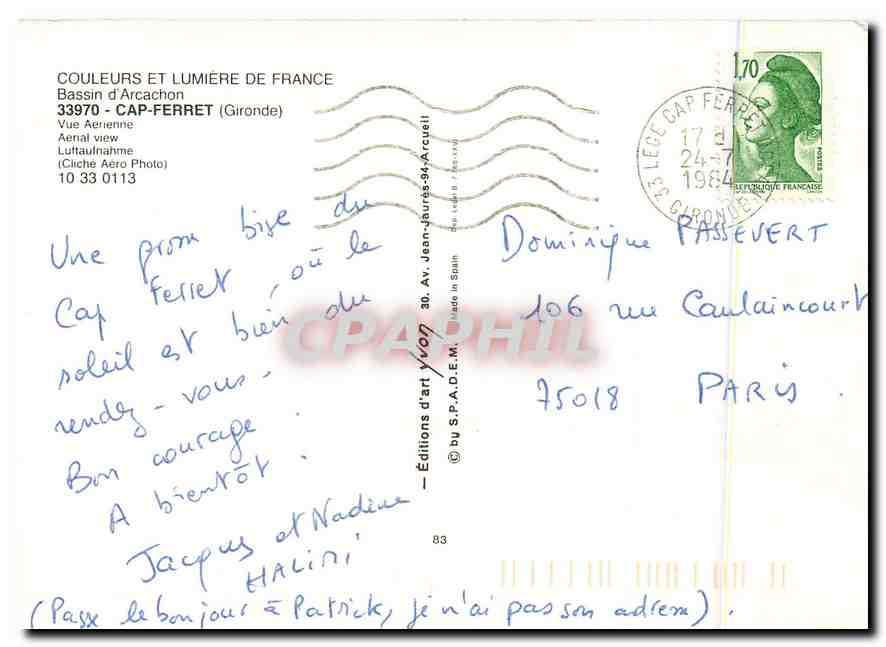 COULEURS ET LUMIÈRE DE FRANCE
Bassin d'Arcachon
33970 - CAP-FERRET (Gironde)
Vue Aérienne
Aerial view
Luftaufnahme
(Cliché Aéro Photo)
10 33 0113
Une grosse bise du
Cap Ferret, où le
soleil est bien du
rendez-vous.
Bon courage.
A bientôt.
Jacques et Nadine
HALIMI
(Passe le bonjour à Patrick, je n'ai pas son adresse).
— Éditions d'art Yvon 30. Av. Jean-Jaurès-94-Arcueil
© by S.P.A.D.E.M. Made in Spain Dep. Legal B.
83
1,70
POSTES
REPUBLIQUE FRANÇAISE
33 LEGE CAP FERRET
17 H
24-7
1984
GIRONDE
Dominique PASSEVERT
106 rue Caulaincourt
75018 PARIS.
CPAPHIL